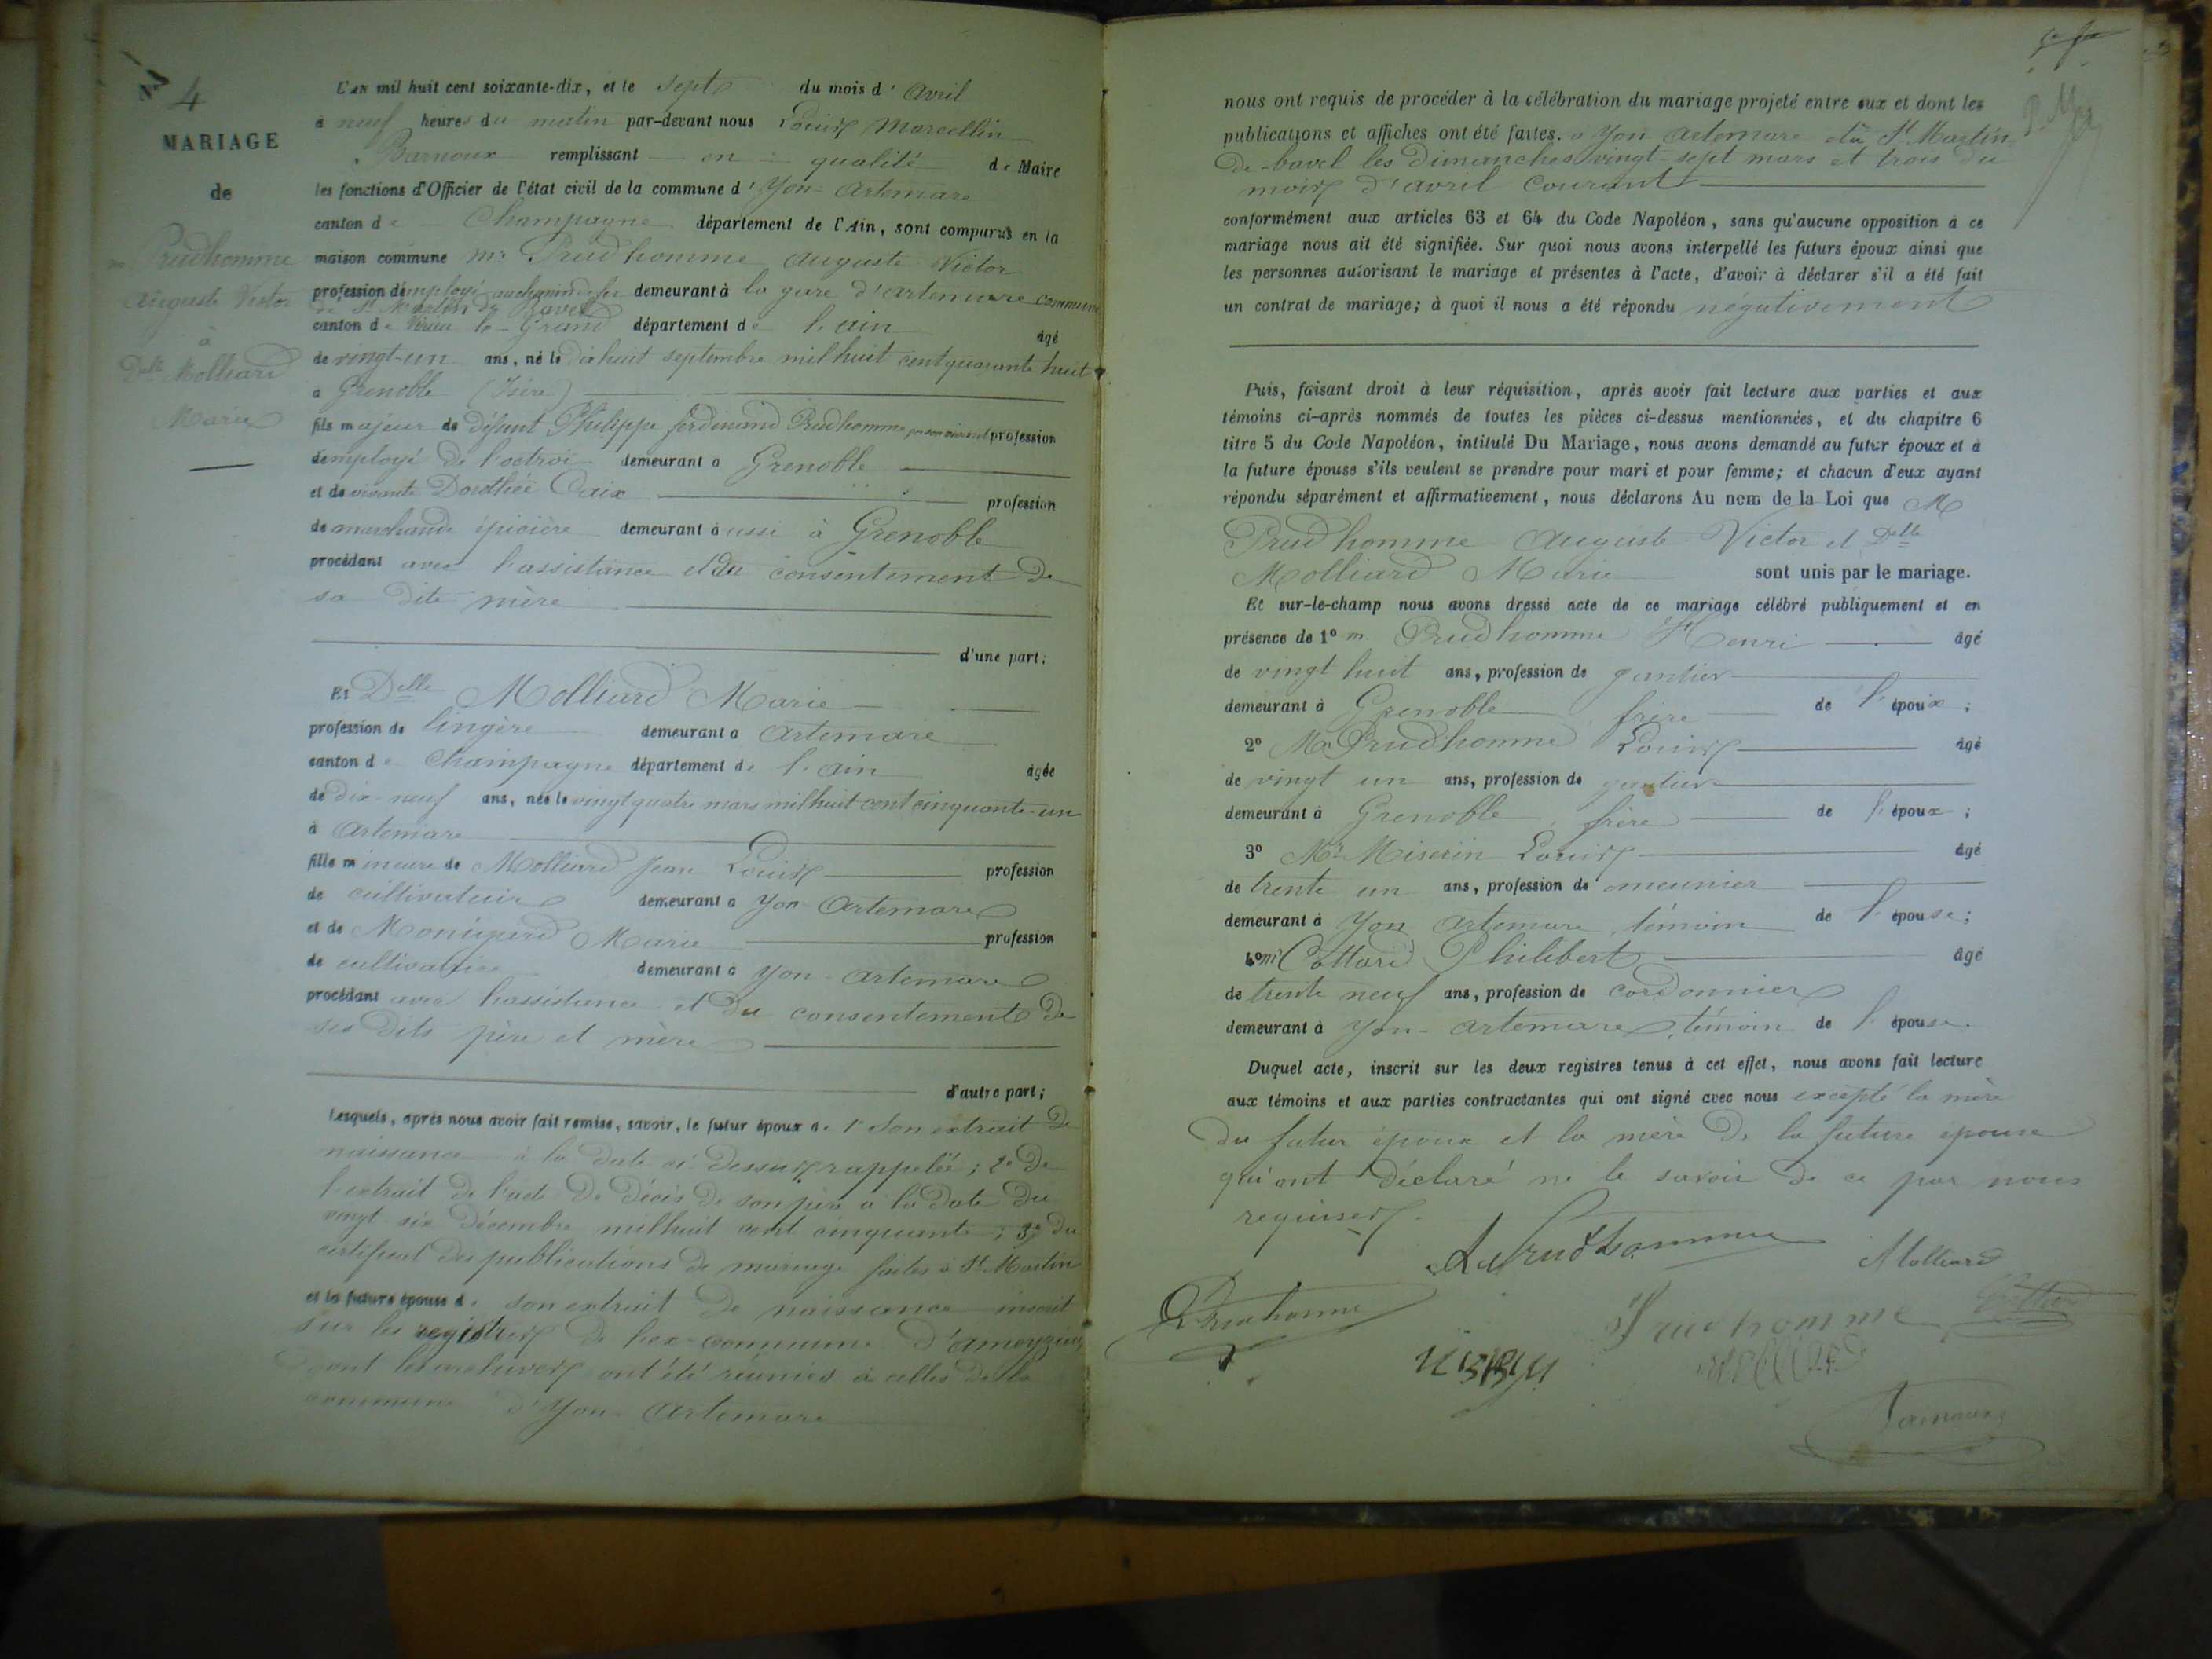 N° 4
MARIAGE
de
Mr Prudhomme
Auguste Victor
à
Delle Molliard
Marie
L'an mil huit cent soixante-dix, et le sept du mois d'avril
à neuf heures du matin par-devant nous Louis Marcellin
Barnoux remplissant en qualité de Maire
les fonctions d'Officier de l'état civil de la commune d'Yon-Artemare
canton de Champagne département de l'Ain, sont comparus en la
maison commune Mr Prudhomme Auguste Victor
profession d'employé au chemin de fer demeurant à la gare d'artemare commune
de St Martin de Bavel
canton de Virieu le-Grand département de l'ain âgé
de vingt-un ans, né le dix huit septembre mil huit cent quarante huit
à Grenoble (Isère)
fils majeur de défunt Philippe ferdinand Prudhomme en son vivant profession
d'employé de l'octroi demeurant à Grenoble
et de vivante Dorothée Craix profession
de marchande épicière demeurant aussi à Grenoble
procédant avec l'assistance et du consentement de
sa dite mère
d'une part;
Et Delle Molliard Marie
profession de lingère demeurant à artemare
canton de Champagne département de l'ain âgée
de dix-neuf ans, née le vingt quatre mars mil huit cent cinquante-un
à Artemare
fille mineure de Molliard Jean Louis profession
de cultivateur demeurant à Yon Artemare
et de Marie profession
de cultivatrice demeurant à Yon-artemare
procédant avec l'assistance et du consentement de
ses dits père et mère
d'autre part;
Lesquels, après nous avoir fait remise, savoir, le futur époux de 1° Son extrait de
naissance à la date ci-dessus rappelée; 2° De
l'extrait de l'acte de décès de son père à la date du
vingt-six Décembre mil huit cent cinquante; 3° du
certificat des publications de mariage faites à St Martin
et la future épouse de son extrait de naissance inscrit
sur les registres de l'ex-commune d'ameyzieu
dont les archives ont été réunies à celles de la
commune d'Yon-Artemare
nous ont requis de procéder à la célébration du mariage projeté entre eux et dont les
publications et affiches ont été faites. à Yon artemare et à St Martin
De-bavel les Dimanches vingt-sept mars et trois du
mois d'avril courant
conformément aux articles 63 et 64 du Code Napoléon, sans qu'aucune opposition à ce
mariage nous ait été signifiée. Sur quoi nous avons interpellé les futurs époux ainsi que
les personnes autorisant le mariage et présentes à l'acte, d'avoir à déclarer s'il a été fait
un contrat de mariage; à quoi il nous a été répondu négativement
Puis, faisant droit à leur réquisition, après avoir fait lecture aux parties et aux
témoins ci-après nommés de toutes les pièces ci-dessus mentionnées, et du chapitre 6
titre 5 du Code Napoléon, intitulé Du Mariage, nous avons demandé au futur époux et à
la future épouse s'ils veulent se prendre pour mari et pour femme; et chacun d'eux ayant
répondu séparément et affirmativement, nous déclarons Au nom de la Loi que M
Prudhomme Auguste Victor et Delle
Molliard Marie sont unis par le mariage.
Et sur-le-champ nous avons dressé acte de ce mariage célébré publiquement et en
présence de 1° m. Prudhomme Henri âgé
de vingt huit ans, profession de gantier
demeurant à Grenoble frère de l'époux;
2° Mr Prudhomme Louis âgé
de vingt un ans, profession de gantier
demeurant à Grenoble, frère de l'époux;
3° Mr Miserin Louis âgé
de trente un ans, profession de meunier
demeurant à Yon artemare, témoin de l'épouse;
4° mr Cottard Philibert âgé
de trente neuf ans, profession de cordonnier
demeurant à Yon-artemare, témoin de l'épouse.
Duquel acte, inscrit sur les deux registres tenus à cet effet, nous avons fait lecture
aux témoins et aux parties contractantes qui ont signé avec nous excepté la mère
du futur époux et la mère de la future épouse
qui ont déclaré ne le savoir de ce par nous
requises.
A Prudhomme
Molliard
Prudhomme
Prudhomme
Barnoux